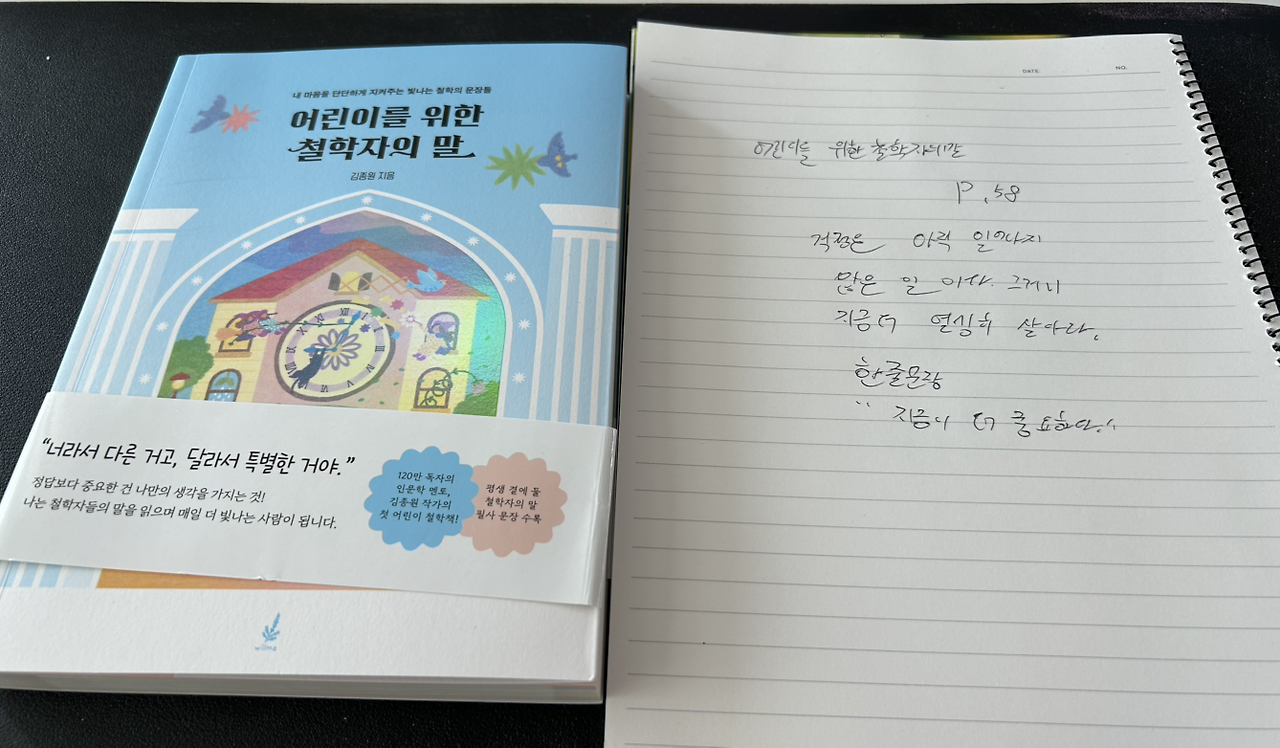 내 마음을 단단하게 지켜주는 빛나는 철학의 문장들
어린이를 위한
철학자의 말
김종원 지음
“너라서 다른 거고, 달라서 특별한 거야.”
정답보다 중요한 건 나만의 생각을 가지는 것!
나는 철학자들의 말을 읽으며 매일 더 빛나는 사람이 됩니다.
120만 독자의
인문학 멘토,
김종원 작가의
첫 어린이 철학책!
평생 곁에 둘
철학자의 말
필사 문장 수록
DATE. NO.
어린이를 위한 철학자의말
P.58
걱정은 아직 일어나지
않은 일 이다. 그러니
지금 더 열심히 살아라.
한줄문장
“지금이 더 중요하다.”